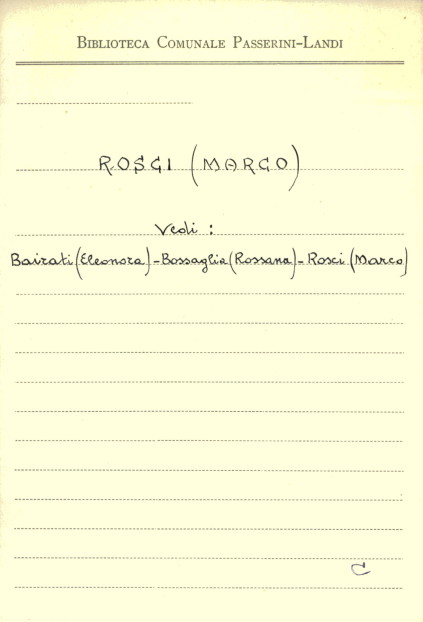 BIBLIOTECA COMUNALE PASSERINI-LANDI
ROSCI (MARCO)
Vedi :
Bairati (Eleonora) - Bossaglia (Rossana) - Rosci (Marco)
C